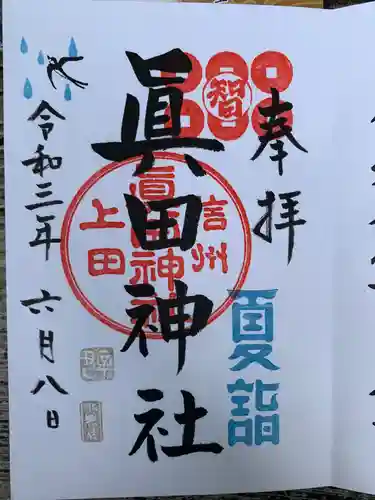 奉拝
智
夏詣
眞田神社
信州
眞田神社
上田
令和三年
六月八日